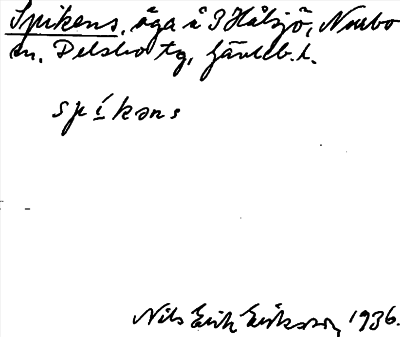 Spikens, äga å 3 Hålsjö, Norrbo
sn. Delsbo tg, Gävleb. l.
spi̱kəns
Nils Erik Eriksson 1936.